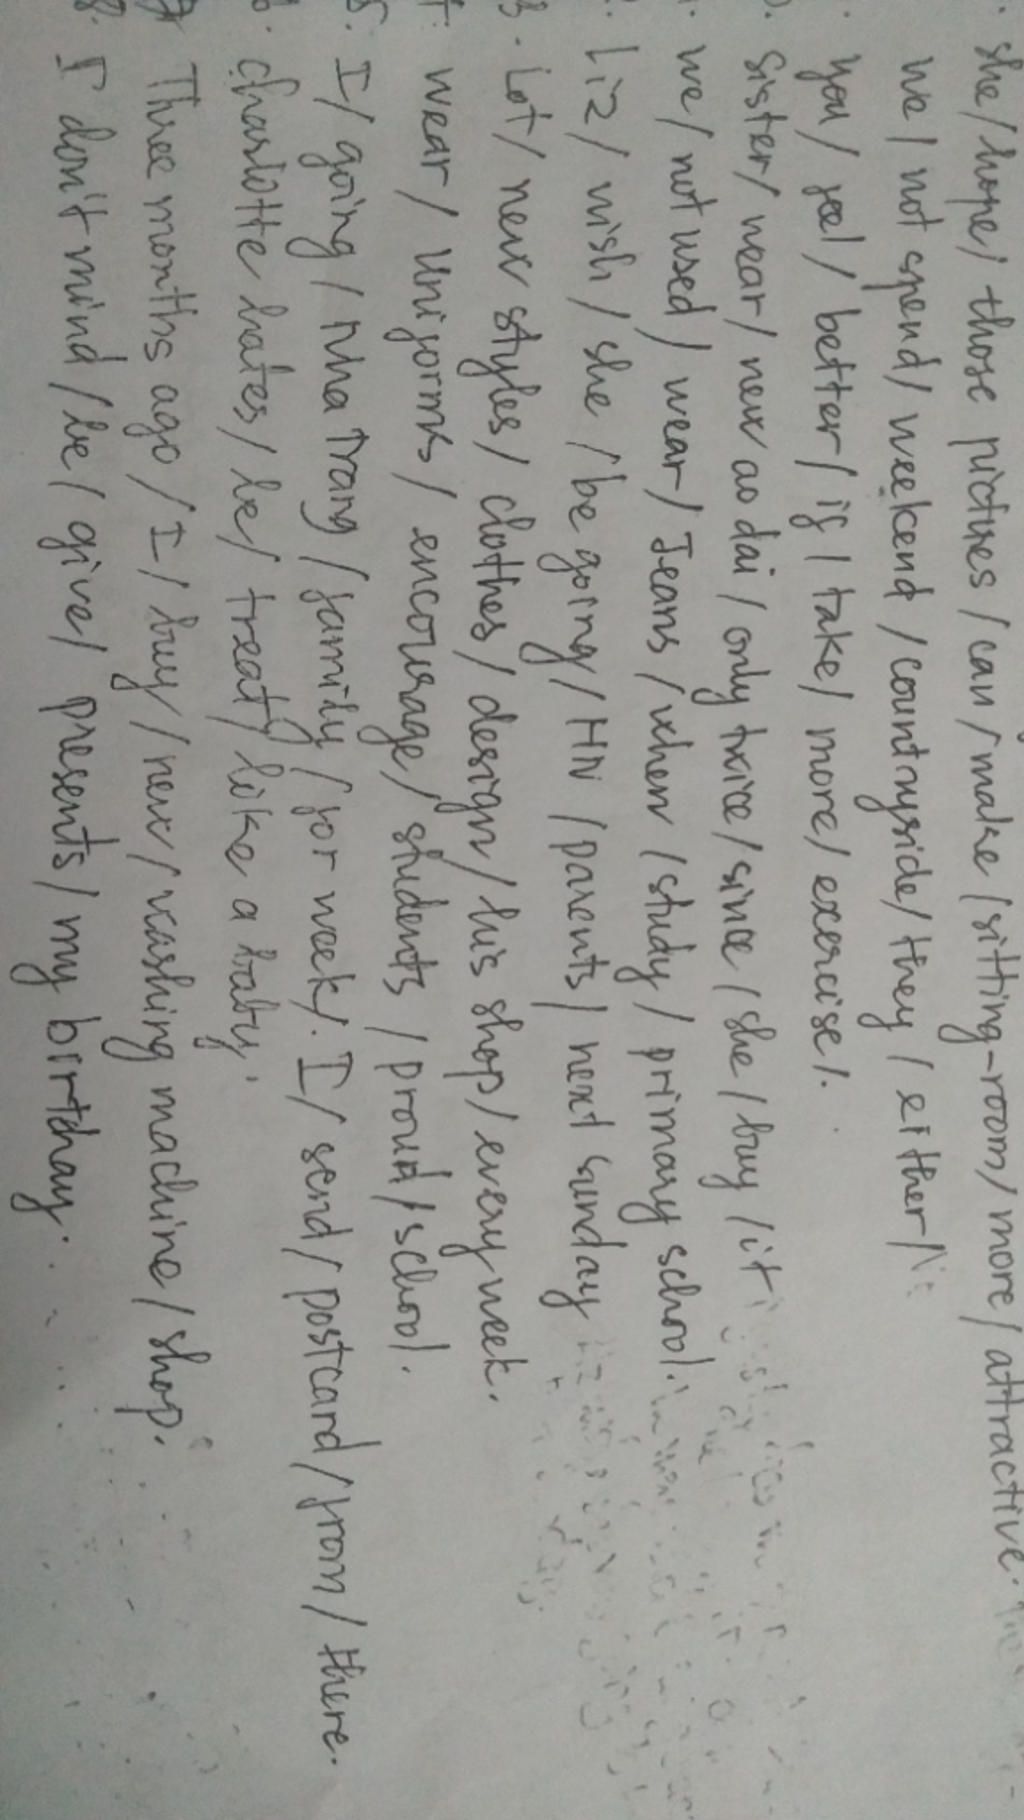 she/hope/ those pictures/can/make/sitting-room/more/attractive.
we/ not spend/ weekend/countryside/they/either/
you/ feel/ better/ if/ take/ more/ exercise/.
Sister/ wear/ new ao dai/ only twice/since/she/buy/it
we/ not used/ wear/ Jeans/when/study/ primary school.
Liz/ wish/ she/be going/HN/parents/ next sunday
3. Lot/ new styles/ clothes/ design/ his shop/every week.
wear/ uniforms/ encourage/ students /proud/school.
5. I/ going/ Nha Trang/family/for week/. I/ send/postcard/from/there.
Charlotte hates/ be/ treat/ like a baby.
Three months ago /I/buy/new/washing machine/shop.
8. I don't mind/be/ give/ presents/ my birthday.